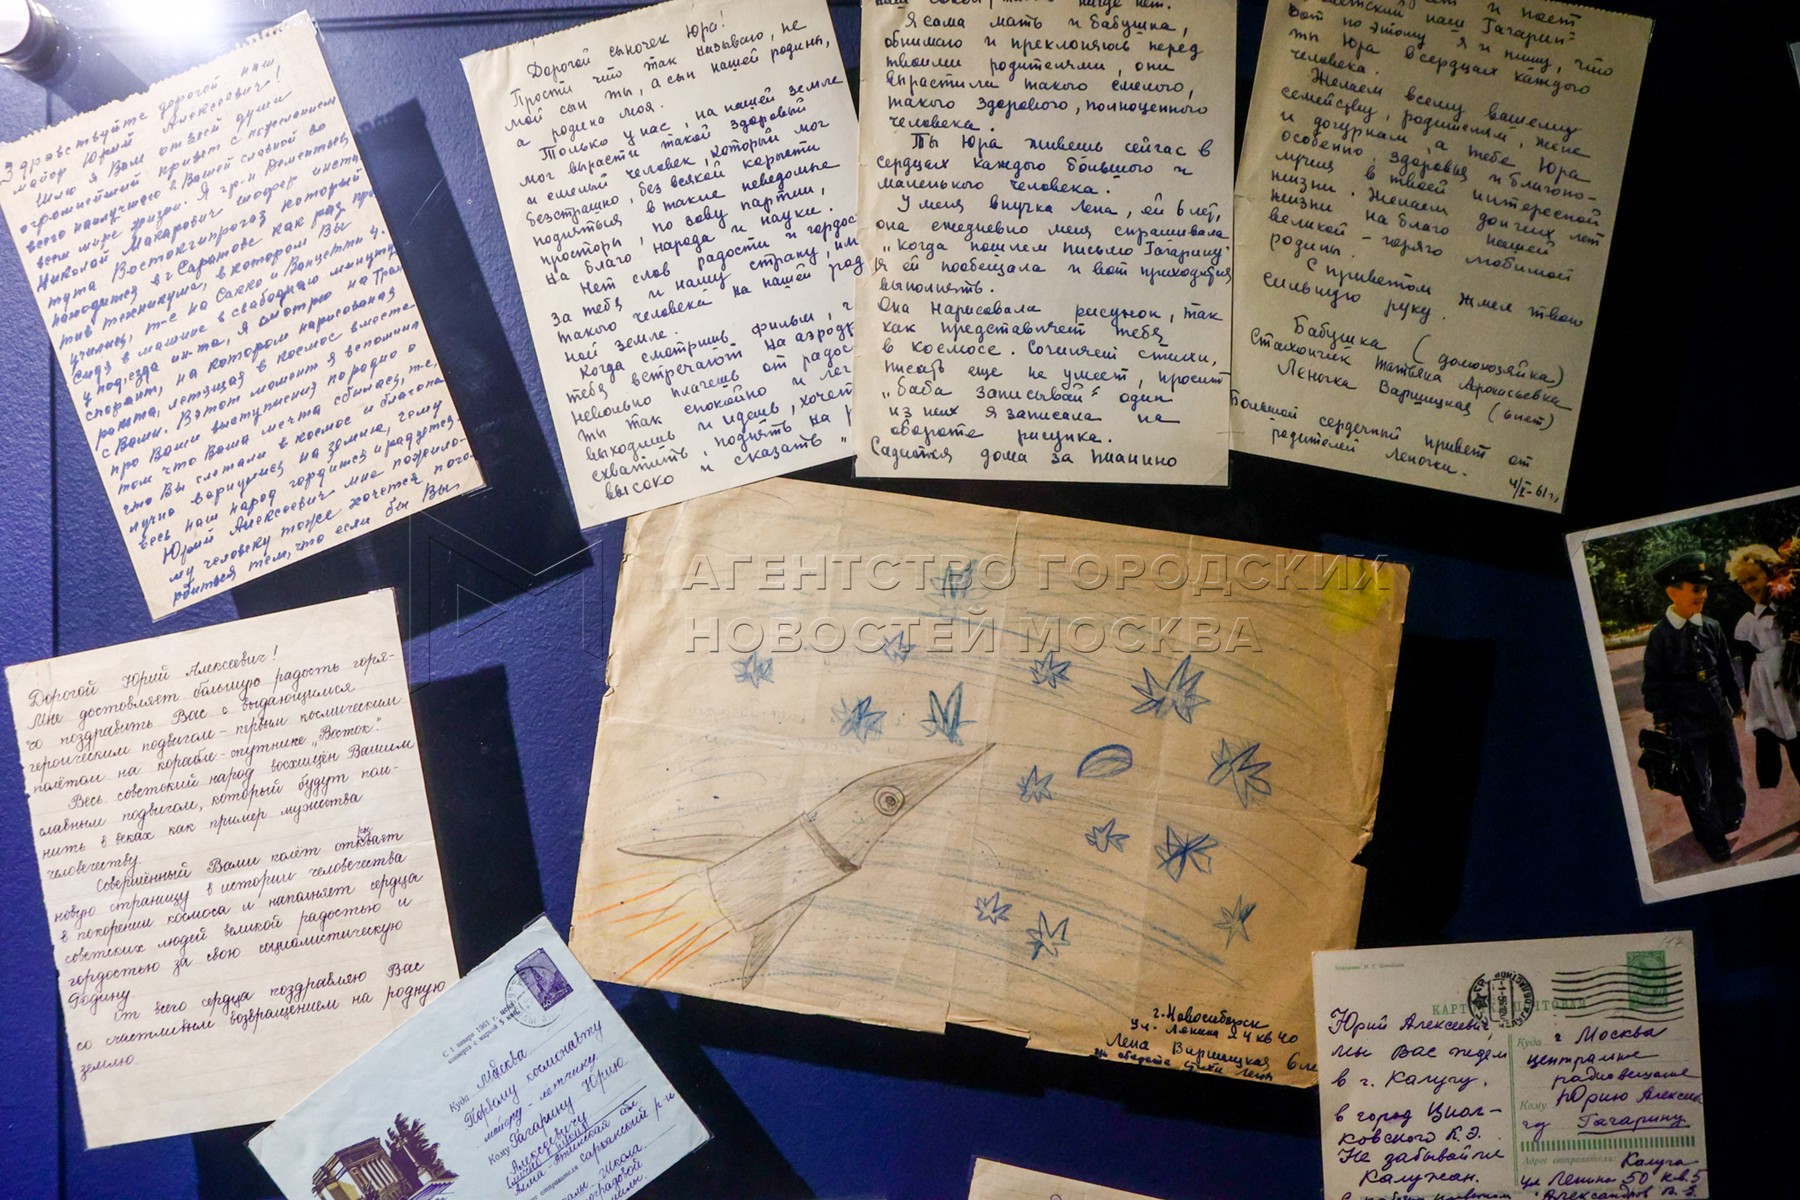 Здравствуйте дорогой наш,
майор Юрий Алексеевич!
Шлю я Вам от всей души
огромнейший привет с пожеланием
всего наилучшего в Вашей славной во
всем мире жизни. Я гр-н Дементьев
Николай Макарович шофер инсти-
тута Востокгипрогаз который
находится в г. Саратове как раз про-
тив техникума, в котором Вы
учились, т-е на Сакко и Ванцетти 4.
Сидя в машине в свободную минуту
у подъезда ин-та, я смотрю на Тран
спорант, на котором нарисована
ракета, летящая в космос вместе
с Вами. В этот момент я вспомнил
про Ваше выступление по радио о
том что Ваша мечта сбылась, т.е,
что Вы слетали в космос и благопо-
лучно вернулись на землю, чему
весь наш народ гордится и радуется.
Юрий Алексеевич мне пожило-
му человеку тоже хочется
тем, что если бы Вы
Дорогой сыночек Юра!
Прости что так называю, не
мой сын ты, а сын нашей родины,
а родина моя.
Только у нас, на нашей земле
мог вырасти такой здоровый
и смелый человек, который мог
безстрашно, без всякой корысти
подняться в такие неведомые
просторы, по зову партии,
на благо народа и науки.
Нет слов радости и гордос
за тебя и нашу страну, им
такого человека на нашей род
ной земле.
Когда смотришь фильм, г
тебя встречают на аэродр
невольно плачешь от радос
ты так спокойно и лег
выходишь и идешь, хочет
схватить, поднять на р
высоко и сказать "
нигде нет.
Я сама мать и бабушка,
обнимаю и преклоняюсь перед
твоими родителями, они
вырастили такого смелого,
такого здорового, полноценного
человека.
Ты Юра живешь сейчас в
сердцах каждого большого и
маленького человека.
У меня внучка Лена, ей 6 лет,
она ежедневно меня спрашивала
„когда пошлем письмо Гагарину"
я ей пообещала и вот приходится
выполнять.
Она нарисовала рисунок, так
как представляет тебя
в космосе. Сочиняет стихи,
писать еще не умеет, просит
„баба записывай" один
из них я записала на
обороте рисунка.
Садится дома за пианино
и поет
наш Гагарин"
вот поэтому я и пишу, что
ты Юра в сердцах каждого
человека.
Желаем всему вашему
семейству, родителям, жене
и дочуркам, а тебе Юра
особенно, здоровья и благопо-
лучия в твоей интересной
жизни. Желаем долгих лет
жизни на благо нашей
великой - горячо любимой
родины.
С приветом жмем твою
сильную руку.
Бабушка (домохозяйка)
Татьяна
Леночка Варшицкая (6 лет)
Большой сердечный привет от
родителей Леночки.
4/X-61 г.
АГЕНТСТВО ГОРОДСКИХ
НОВОСТЕЙ МОСКВА
Дорогой Юрий Алексеевич!
Мне доставляет большую радость горя-
чо поздравить Вас с выдающимся
героическим подвигом - первым космическим
полётом на корабле-спутнике „Восток".
Весь советский народ восхищён Вашим
славным подвигом, который будут пом-
нить в веках как пример мужества
человечеству.
Совершённый Вами полёт открывает
новую страницу в истории человечества
в покорении космоса и наполняет сердца
советских людей великой радостью и
гордостью за свою социалистическую
Родину
От всего сердца поздравляю Вас
со счастливым возвращением на родную
землю.
г. Новосибирск
ул. Ленина 24 кв 40
Лена Варшицкая 6 ле
на обороте стихи Лены
Куда Москва
Первому космонавту
майору-летчику
Кому Гагарину Юрию
Алексеевичу
Алма-Атинская обл
КАРТОЧКА ПОЧТОВАЯ
Юрий Алексеевич,
мы Вас ждем
в г. Калугу,
в город Циол-
ковского К.Э.
Не забывайте
Калужан.
Куда г Москва
центральное
радиовещание
Кому Юрию Алексее
Гагарину
Адрес отправителя: Калуга
ул Ленина 50 кв. 5